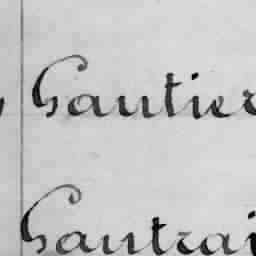 Gautier
Gautrai